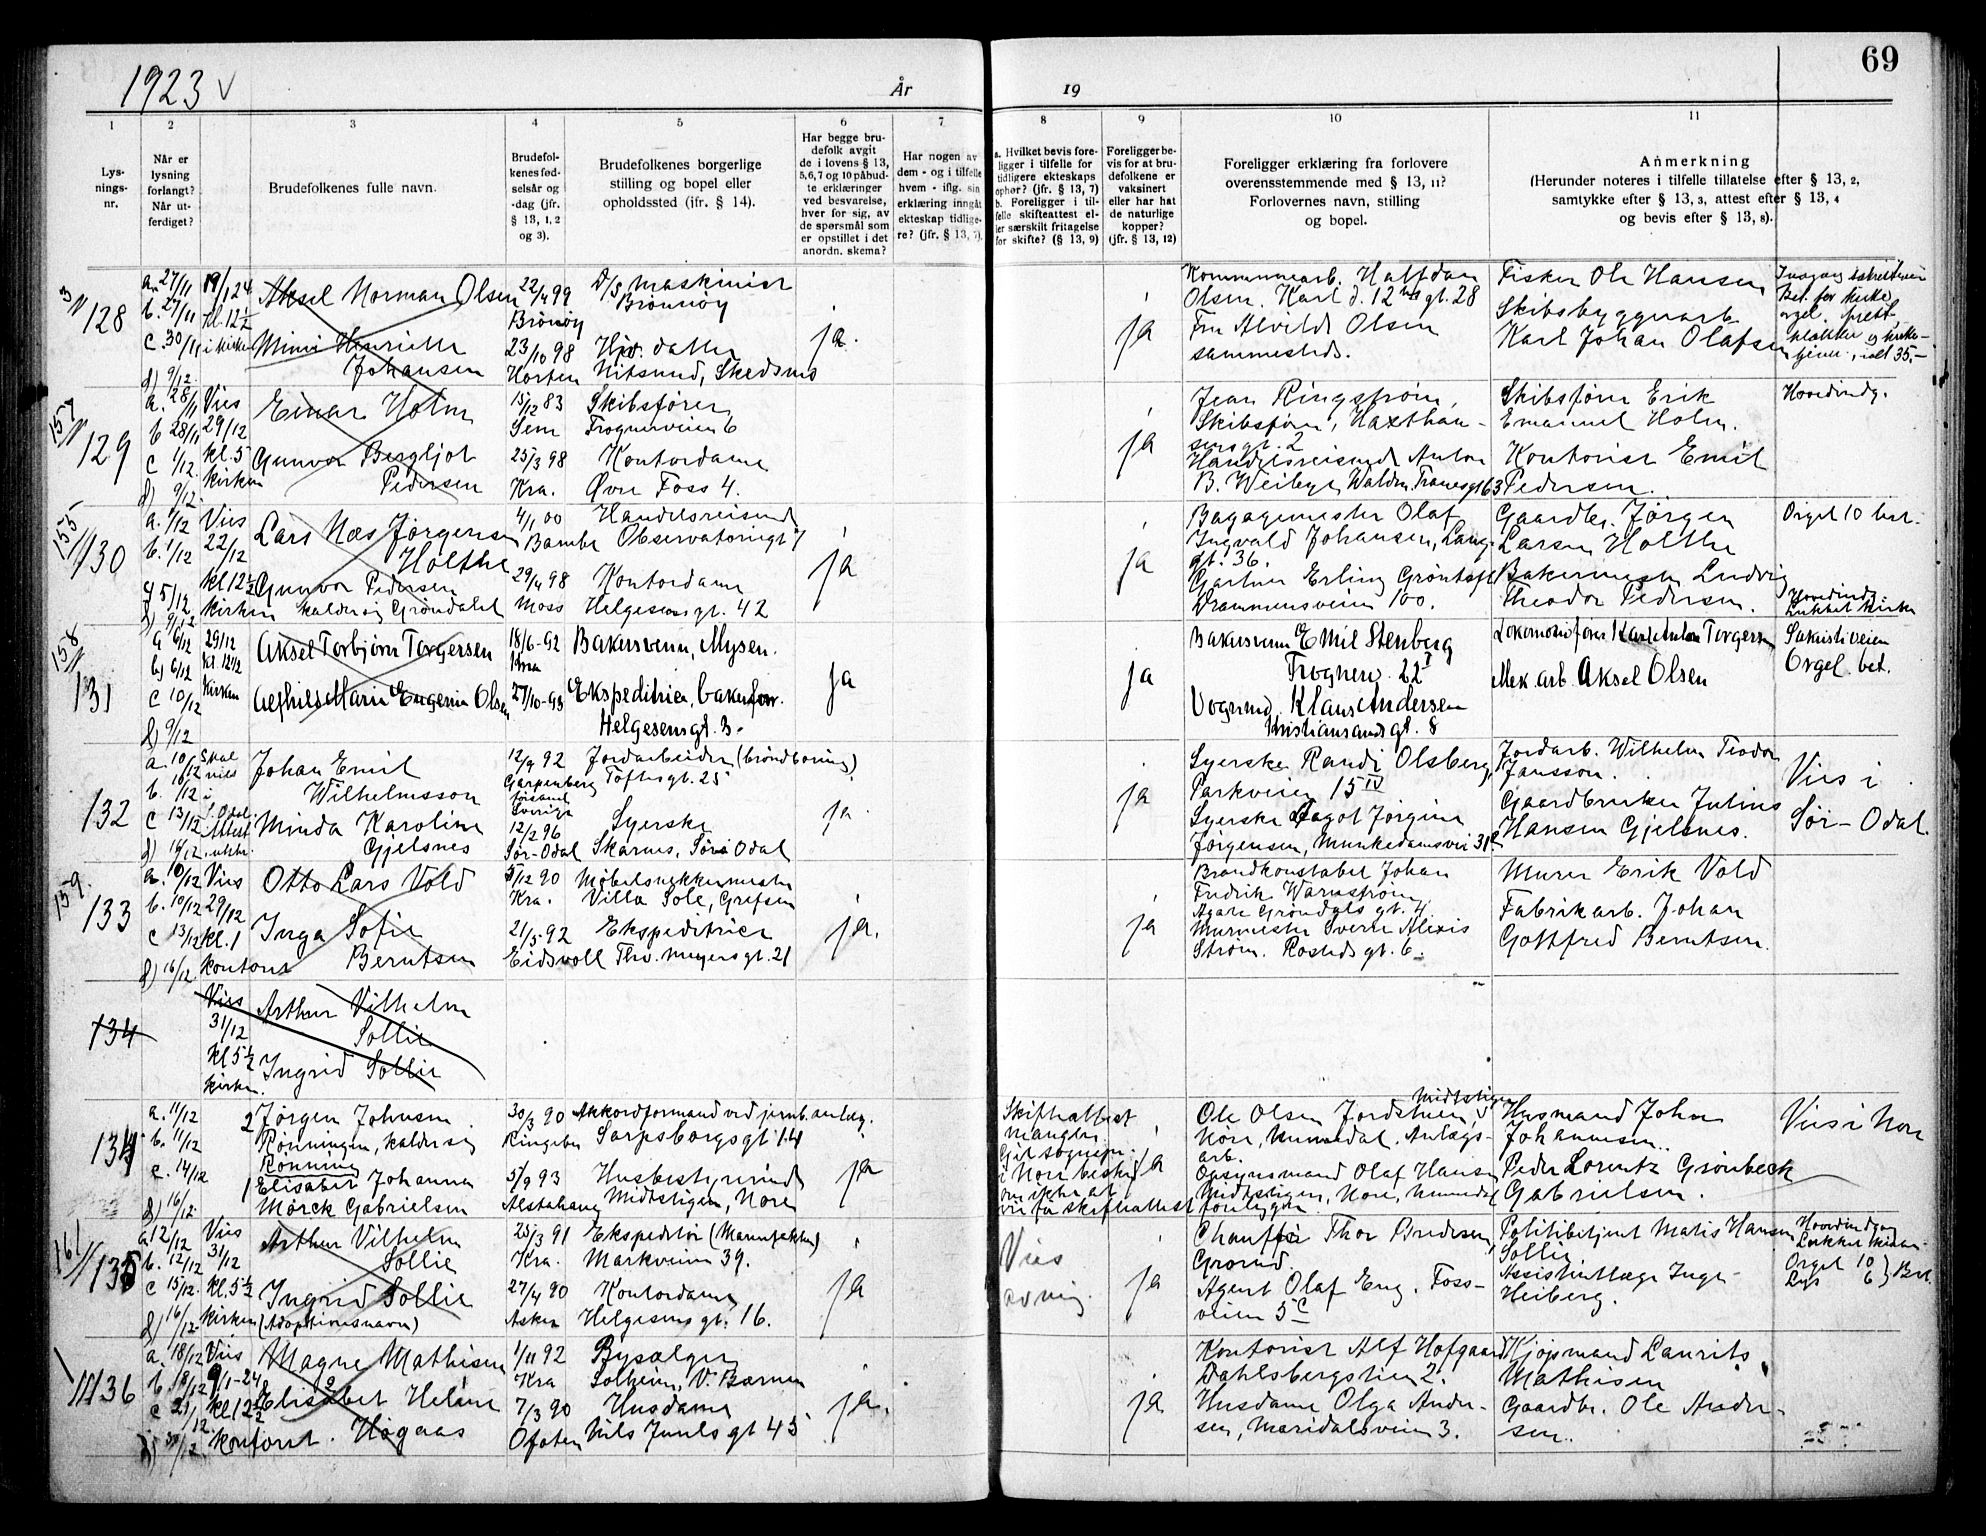 1923 v
År
19
69
1
2
3
4
5
6
7
8
9
10
11
Lys-
nings-
nr.
Når er
lysning
forlangt?
Når ut-
ferdiget?
Brudefolkenes fulle navn.
Brudefol-
kenes fød-
selsår og
-dag (jfr.
§ 13, 1, 2
og 3).
Brudefolkenes borgerlige
stilling og bopel eller
opholdssted (ifr. § 14).
Har begge bru-
defolk avgit
de i lovens § 13,
5, 6, 7 og 10 påbud-
te erklæringer
ved besvarelse,
hver for sig, av
de spørsmål som
er opstillet i det
anordn. skema?
Har nogen av
dem - og i tilfelle
hvem - iflg. sin
erklæring inngåt
ekteskap tidlige-
re? (jfr. § 13, 7).
a. Hvilket bevis fore-
ligger i tilfelle for
tidligere ekteskaps
ophør? (jfr. § 13, 7)
b. Foreligger i til-
felle skifteattest el-
ler særskilt fritagelse
for skifte? (§ 13, 9)
Foreligger be-
vis for at bru-
defolkene er
vaksinert
eller har hat
de naturlige
kopper?
(jfr. § 13, 12)
Foreligger erklæring fra forlovere
overensstemmende med § 13, 11?
Forlovernes navn, stilling
og bopel.
Anmerkning
(Herunder noteres i tilfelle tillatelse efter § 13, 2,
samtykke efter § 13, 3, attest efter § 13, 4
og bevis efter § 13, 8).
128
a. 27/11
b. 27/11
c. 30/11
d) 9/12
19/1 24
kl. 12 1/2
i kirken
Aksel Norman Olsen
22/4 99
Brönnöy
D/S maskinist
Brönnöy
Mimi Henriette
Johansen
23/10 98
Horten
Hj.v. datter
Nitsund, Skedsmo
ja.
ja
Kommunearb. Halfdan
Olsen. Karl d. 12tes gt. 28
Fru Alvilde Olsen
sammesteds.
Fisker Ole Hansen
Skibsbyggerarb.
Karl Johan Olafsen
129
a. 28/11
b 28/11
c 1/12
d) 9/12
Vies
29/12
kl. 5
kirken
Einar Holm
15/12 83
Sem
Skibsfører
Frognerveien 6
Gunvor Bergljot
Pedersen
25/3 98
Kra.
Kontordame
Øvre Foss 4.
ja
Jean Ringstrøm,
Skibsfører, Haxthau-
sensgt. 2
Handelsreisende Anton
B. Weiby
Skibsfører Erik
Emanuel Holm.
Kontorist Emil
Pedersen.
Hovedindg.
155
130
a. 1/12
b. 1/12
d) 9/12
Vies
22/12
kl 12 1/2
kirken
Lars Næs Jørgensen
Holthe
4/1 00
Bamble
Handelsreisende
Observatoriegt 7
Gunvor Pedersen
kalder sig Gröndahl
29/4 98
Moss
Kontordame
Helgesens gt. 42
ja
ja
Bagagemester Olaf
Ingvald Johansen, Lang-
gt. 36.
Gartner Erling Gröntoft
Drammensveien 100.
Gaardbr. Jørgen
Larsen Holthe
Bakermester Ludvig
Theodor Pedersen.
Orgel 10 bet.
158
131
a 6/12
b) 6/12
c 10/12
d) 9/12
29/12
Kl. 12 1/2
Kirken
Aksel Torbjørn Torgersen
18/6-92
Kra
Bakersvenn, Mysen.
Marie Eugenie Olsen
27/10-98
Ekspeditrice, bakerforr.
Helgesensgt. 3.
ja
ja
Bakersvenn Emil Stenberg
Frognerv. 22 I
Vognmd. Klaus Andersen
Kristiansandsgt. 8
Lokomotivfører Karl Anton Torgersen
Mek. arb. Aksel Olsen
Hovedindg
Lukket kirke
Sakristiveien
Orgel. bet.
132
a. 10/12
b. 10/12
c 13/12
d) 16/12
Skal
vies
i
S. Odal.
Attest
Johan Emil
Wilhelmsson
12/9 92
Garpenberg
Sverige
Jordarbeider (brøndboring)
Toftesgt. 25
Minda Karoline
Gjelsnes
12/2 96
Sør-Odal
Syerske
Skarnes, Søri Odal
ja
ja
Syerske Randi Olsberg,
Parkveien 15 IV
Syerske Dagot Jørgine
Jørgensen, Munkedamsvei 31 c
Jordarb. Wilhelm Teodor
Jansson.
Gaardbruker Julius
Hansen Gjelsnes.
Vies i
Sør-Odal.
159.
133
a. 10/12
b. 10/12
c 13/12
d) 16/12
Vies
29/12
kl. 1
kontoret
Otto Lars Vold
5/12 90
Kra.
Møbelsnekkermester
Villa Sole, Grefsen
Inga Sofie
Berntsen
21/5 92
Eidsvoll
Ekspeditrice
Thv. Meyersgt. 21
ja.
ja
Brandkonstabel Johan
Fredrik Warnstrøm
Agate Grøndals gt. 4.
Murmester Sverre Alexis
Strøm. Rosteds gt. 6.
Murer Erik Vold
Fabrikarb. Johan
Gottfred Berntsen.
134
Vies
31/12
kl 5 1/2
kirken.
Arthur Vilhelm
Sollie
Ingrid Sollie
134
a. 11/12
b. 11/12
c. 14/12
d) 16/12.
2 Jørgen Johnsen
Rønningen, kalder sig
Rønning
30/3 90
Ringebu
Akkordformand ved jernb. anlæg.
Sarpsborgsgt 14
1 Elisabet Johanna
Mørck Gabrielsen
5/9 93
Alstahaug
Husbestyrerinde
Midtstigen, Nore
ja
Skifteattest
mangler.
ja
Ole Olsen Jordstuen, Midtstigen
Nore, Numedal. Anlægs-
arb.
Opsynsmand Olaf Hansen
Midtstigen, Nore, Numedal
Husmand John
Johannesen.
Peder Lorentz Grønbeck
Gabrielsen.
Vies i Nore
161
135
a 12/12
b. 12/12
c 15/12.
d) 16/12
Vies
31/12
kl. 5 1/2
kirken
Arthur Vilhelm
Sollie
25/3 91
Kra.
Ekspeditör (Manufaktur)
Markveien 39.
Ingrid Sollie
(Adoptivnavn)
27/4 90
Asker
Kontordame
Helgesens gt. 16.
ja
Vies
ja
Chauffør Thor Pedersen,
Grorud.
Agent Olaf Eng. Foss-
veien 5 c
Politibetjent Matis Hansen
Sollie
Assistentlæge Inge-
Heiberg.
Orgel 10
Lys 6 } Bet.
136
a. 18/12
b. 18/12
c 21/12
Vies
9/1-24
kl 12 1/2
kontoret.
Magne Mathisen
1/11 92
Kra
Bysælger
Solheim, V. Bærum
Elisabet Helene
Høgaas
7/3 90
Ofoten
Husdame
Nils Juuls gt 45
ja.
ja
Kontorist Alf Hofgaard
Dahlsbergstien 2.
Husdame Olga Ander-
sen, Maridalsveien 3.
Kjøpmand Laurits
Mathisen
Gaardbr. Ole Ander-
sen.